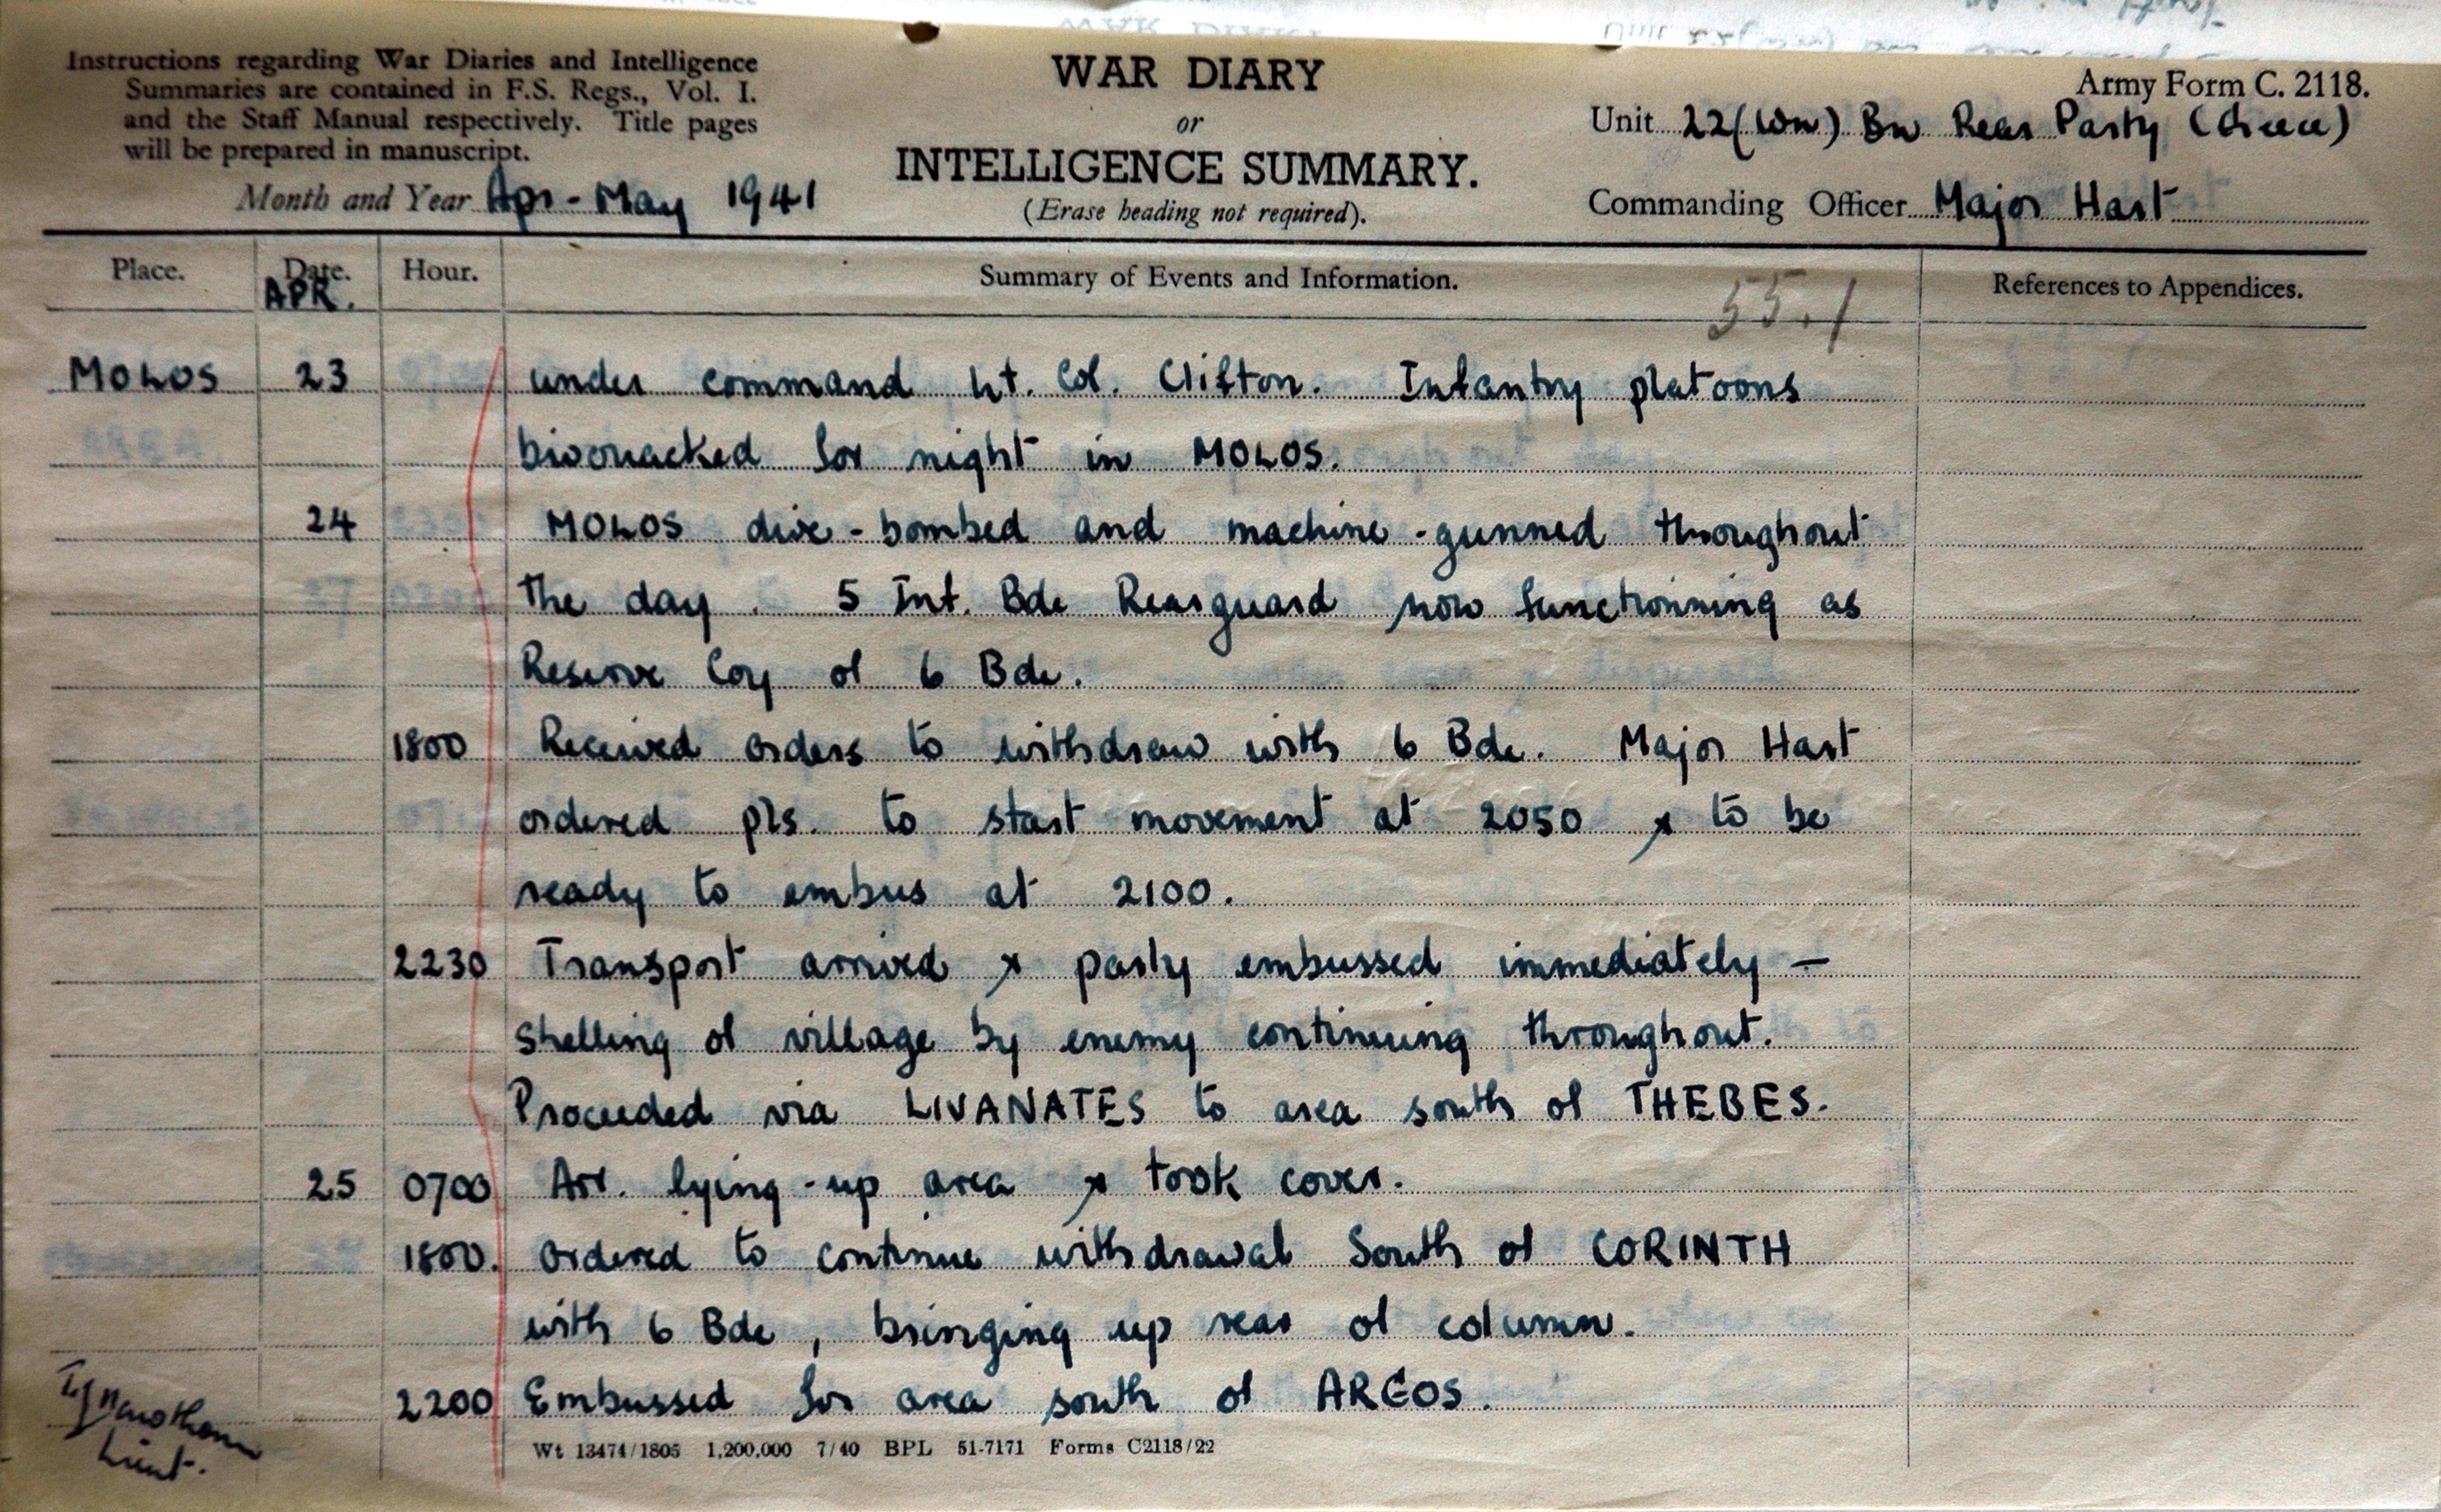 Instructions regarding War Diaries and Intelligence
Summaries are contained in F.S. Regs., Vol. I.
and the Staff Manual respectively. Title pages
will be prepared in manuscript.
Month and Year Apr - May 1941
WAR DIARY
or
INTELLIGENCE SUMMARY.
(Erase heading not required).
Army Form C. 2118.
Unit 22(Wn) Bn Rear Party (Greece)
Commanding Officer Major Hart
Place. Date. Hour. Summary of Events and Information. References to Appendices.
APR.
55.1
MOLOS 23 under command Lt. Col. Clifton. Infantry platoons
bivouacked for night in MOLOS.
24 MOLOS dive-bombed and machine-gunned throughout
the day. 5 Inf. Bde Rearguard now functionning as
Reserve Coy of 6 Bde.
1800 Received orders to withdraw with 6 Bde. Major Hart
ordered pls. to start movement at 2050 & to be
ready to embus at 2100.
2230 Transport arrived & party embussed immediately —
shelling of village by enemy continuing throughout.
Proceeded via LIVANATES to area south of THEBES.
25 0700 Arr. lying-up area & took cover.
1800. Ordered to continue withdrawal South of CORINTH
with 6 Bde, bringing up rear of column.
2200 Embussed for area south of ARGOS.
Lieut.
Wt 13474/1805 1,200,000 7/40 BPL 51-7171 Forms C2118/22